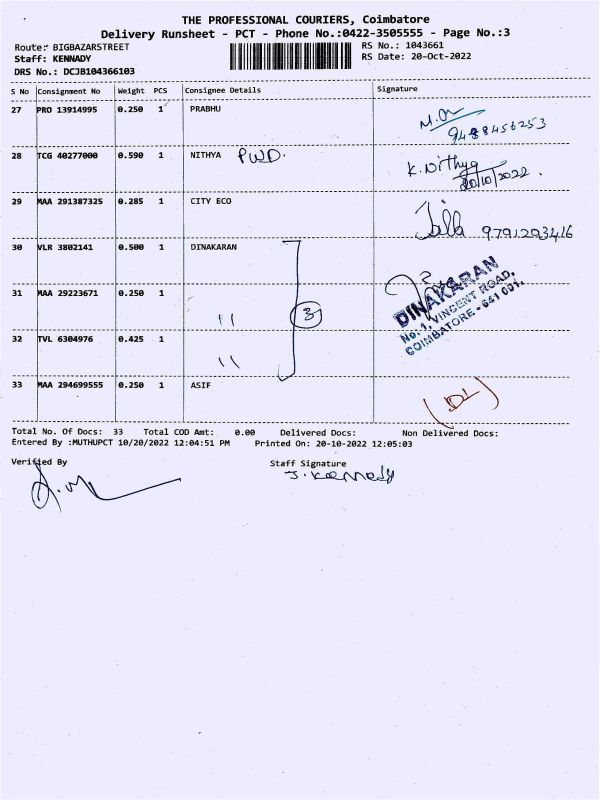 THE PROFESSIONAL COURIERS, Coimbatore
Delivery Runsheet - PCT - Phone No.:0422-3505555 - Page No.:3
Route: BIGBAZARSTREET RS No.: 1043661
Staff: KENNADY RS Date: 20-Oct-2022
DRS No.: DCJB104366103
S No Consignment No Weight PCS Consignee Details Signature
27 PRO 13914995 0.250 1 PRABHU
28 TCG 40277000 0.590 1 NITHYA PWD. K. Nithya
20/10/2022.
29 MAA 291387325 0.285 1 CITY ECO 9791293416
30 VLR 3802141 0.500 1 DINAKARAN
31 MAA 29223671 0.250 1 " 3
DINAKARAN
No. 1, VINCENT ROAD,
COIMBATORE - 641 001.
32 TVL 6304976 0.425 1 "
33 MAA 294699555 0.250 1 ASIF (DL)
Total No. Of Docs: 33 Total COD Amt: 0.00 Delivered Docs: Non Delivered Docs:
Entered By :MUTHUPCT 10/20/2022 12:04:51 PM Printed On: 20-10-2022 12:05:03
Verified By Staff Signature
J. Kennady